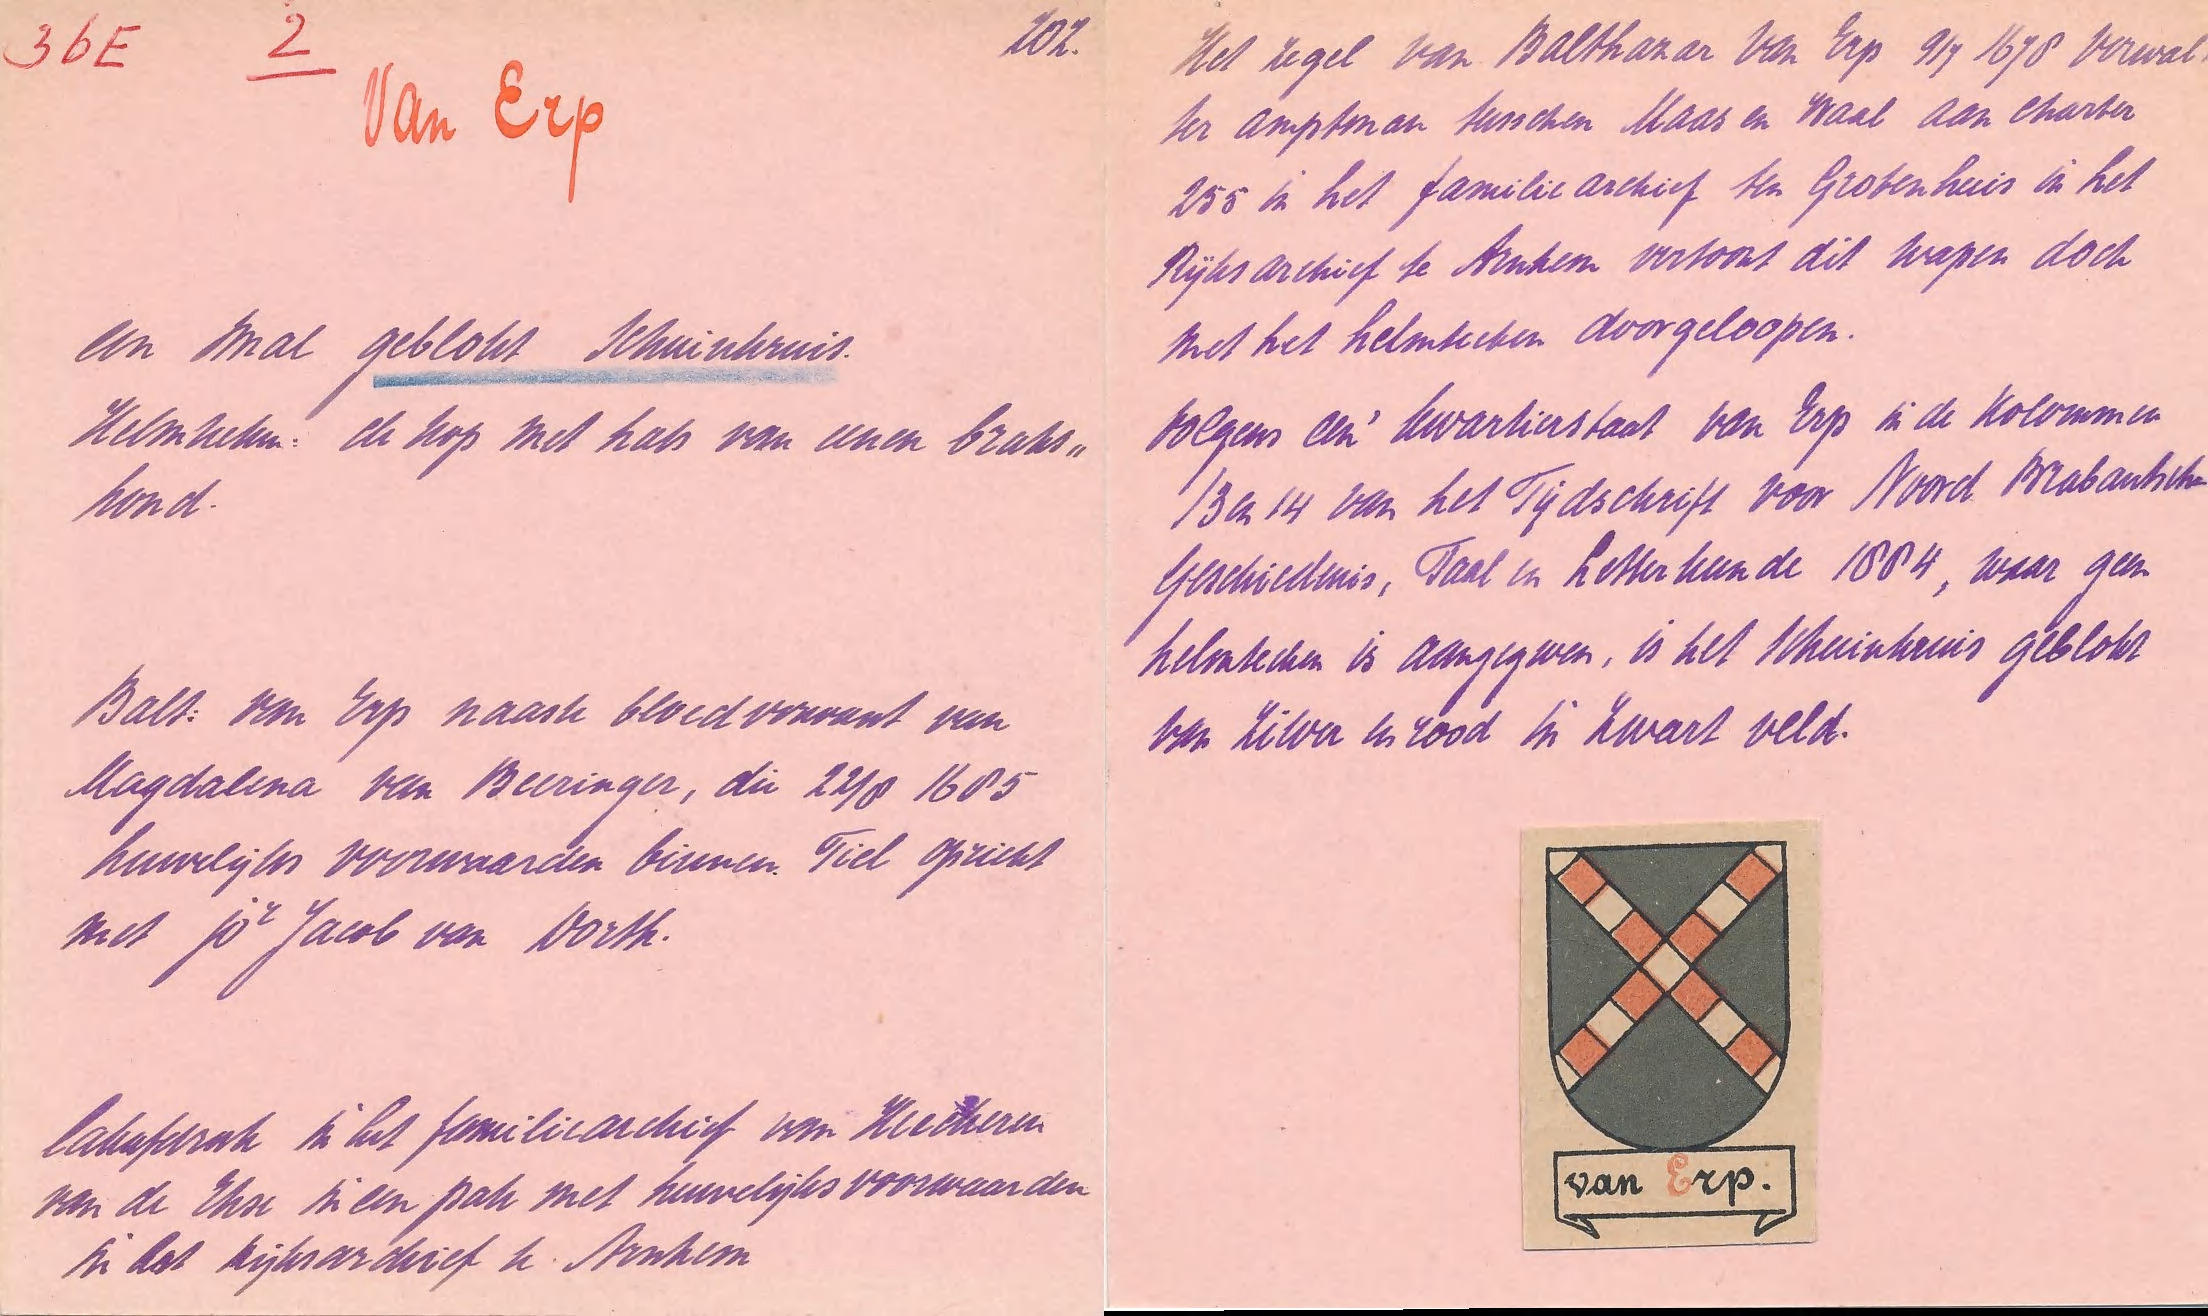 36E 2 202.
Van Erp
een smal geblokt schuinkruis.
Helmteken: de kop met hals van eenen braks„
hond.
Balt: van Erp naaste bloedverwant van
Magdalena van Beeringer, die 22/8 1685
huwelijks voorwaarden binnen Tiel opricht
met jor Jacob van Dorth.
Lakafdruk in het familiearchief van Heeckeren
van de Ehse in een pak met huwelijksvoorwaarden
in het Rijksarchief te Arnhem
Het zegel van Balthazar van Erp 9/7 1678 verwal-
ter amptman tusschen Maas en Waal aan charter
255 in het familie archief ten Grotenhuis in het
Rijks archief te Arnhem vertoont dit wapen doch
met het helmteeken doorgeloopen.
Volgens een kwartierstaat van Erp in de Kolommen
13 en 14 van het Tijdschrift voor Noord Brabantsche
Geschiedenis, Taal en Letterkunde 1884, waar geen
helmteeken is aangegeven, is het schuinkruis geblokt
van zilver en rood in zwart veld.
van Erp.